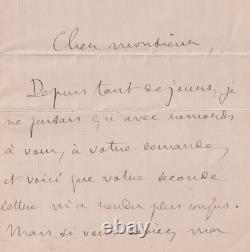 Cher monsieur,
Depuis tant de jours, je
ne pensais qu'avec remords
à vous, à votre demande,
et voici que votre seconde
lettre m'a rendu plus confus.
Mais si vous saviez, mon